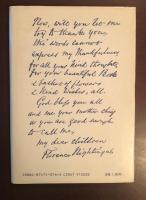 Now, will you let me
try to thank you,
tho' words cannot
express my thankfulness
for all your kind thoughts,
for your beautiful Book
& basket of flowers
& kind wishes, all.
God bless you all
and me your mother chief
as you are good enough
to call me,
my dear children
Florence Nightingale